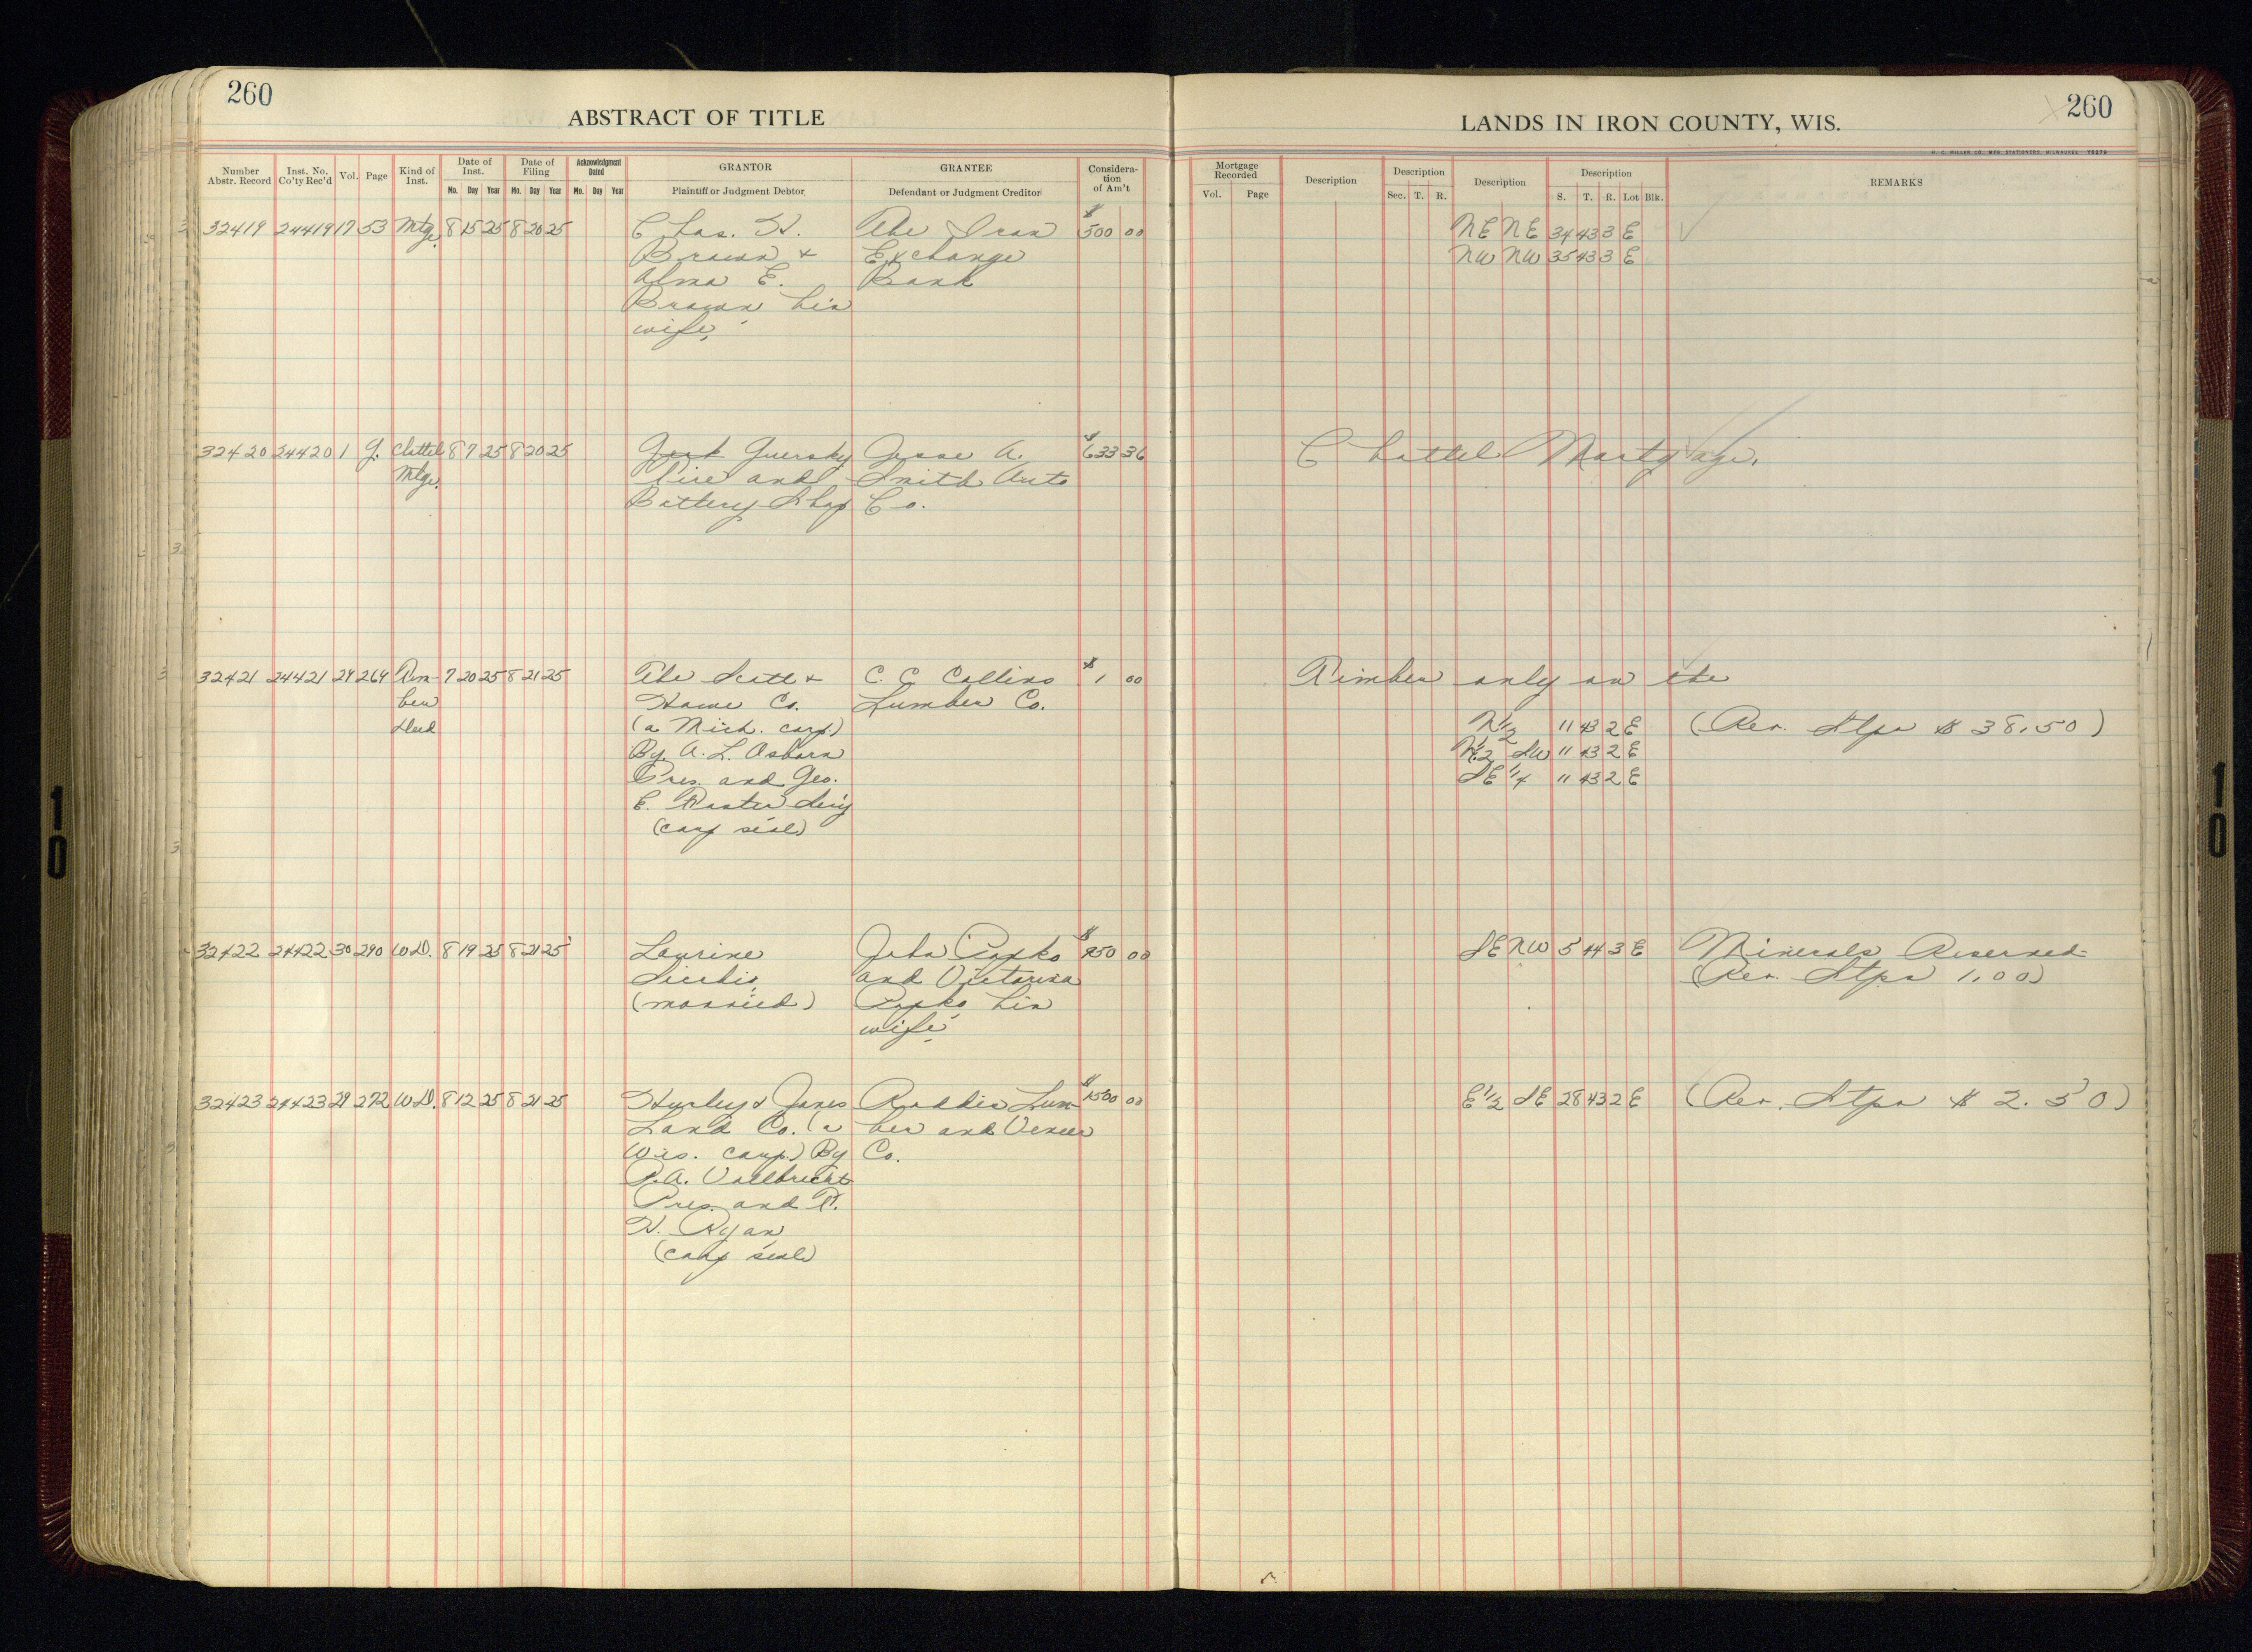 260
ABSTRACT OF TITLE
LANDS IN IRON COUNTY, WIS.
260
H. C. MILLER CO., MFG. STATIONERS, MILWAUKEE
Number Abstr. Record
Inst. No. Co'ty Rec'd
Vol.
Page
Kind of Inst.
Date of Inst.
Mo. Day Year
Date of Filing
Mo. Day Year
Acknowledgment Dated
Mo. Day Year
GRANTOR
Plaintiff or Judgment Debtor
GRANTEE
Defendant or Judgment Creditor
Considera-
tion
of Am't
Mortgage Recorded
Vol. Page
Description
Description
Sec. T. R.
Description
Description
S. T. R. Lot Blk.
REMARKS
32419 24419 17 53 Mtge. 8 15 25 8 20 25 Chas. H. The Iron $500 00 NE NE 34 43 3 E
Brown & Exchange NW NW 35 43 3 E
Alma E. Bank
Brown his
wife,
32420 24420 1 g. Chattel 8 7 25 8 20 25 Guersky Jesse A. $633 36 Chattel Mortgage.
Mtge. Tire and Smith Auto
Battery Shop Co.
32421 24421 29 264 Tim- 7 20 25 8 21 25 The Scott & C. C. Collins $1 00 Timber only on the
ber Howe Co. Lumber Co.
Deed (a Mich. corp.) N 1/2 11 43 2 E (Rev. Stps $38.50)
By A. L. Osborn SW 11 43 2 E
Pres. and Geo. SE 1/4 11 43 2 E
E. Foster Sec'y
(corp seal)
32422 24422 30 290 W.D. 8 19 25 8 21 25 Laurine John Popko $950 00 SE NW 5 44 3 E Minerals Reserved
and Victoria (Rev. Stps 1.00)
(married) Popko his
wife
32423 24423 29 272 W.D. 8 12 25 8 21 25 Hurley & Jones Roddis Lum- $1500 00 E 1/2 SE 28 43 2 E (Rev. Stps $2.50)
Land Co. (a ber and Veneer
Wis. corp.) By Co.
P.A. Vallbrecht
Pres. and T.
H. Ryan
(corp seal)
10
10